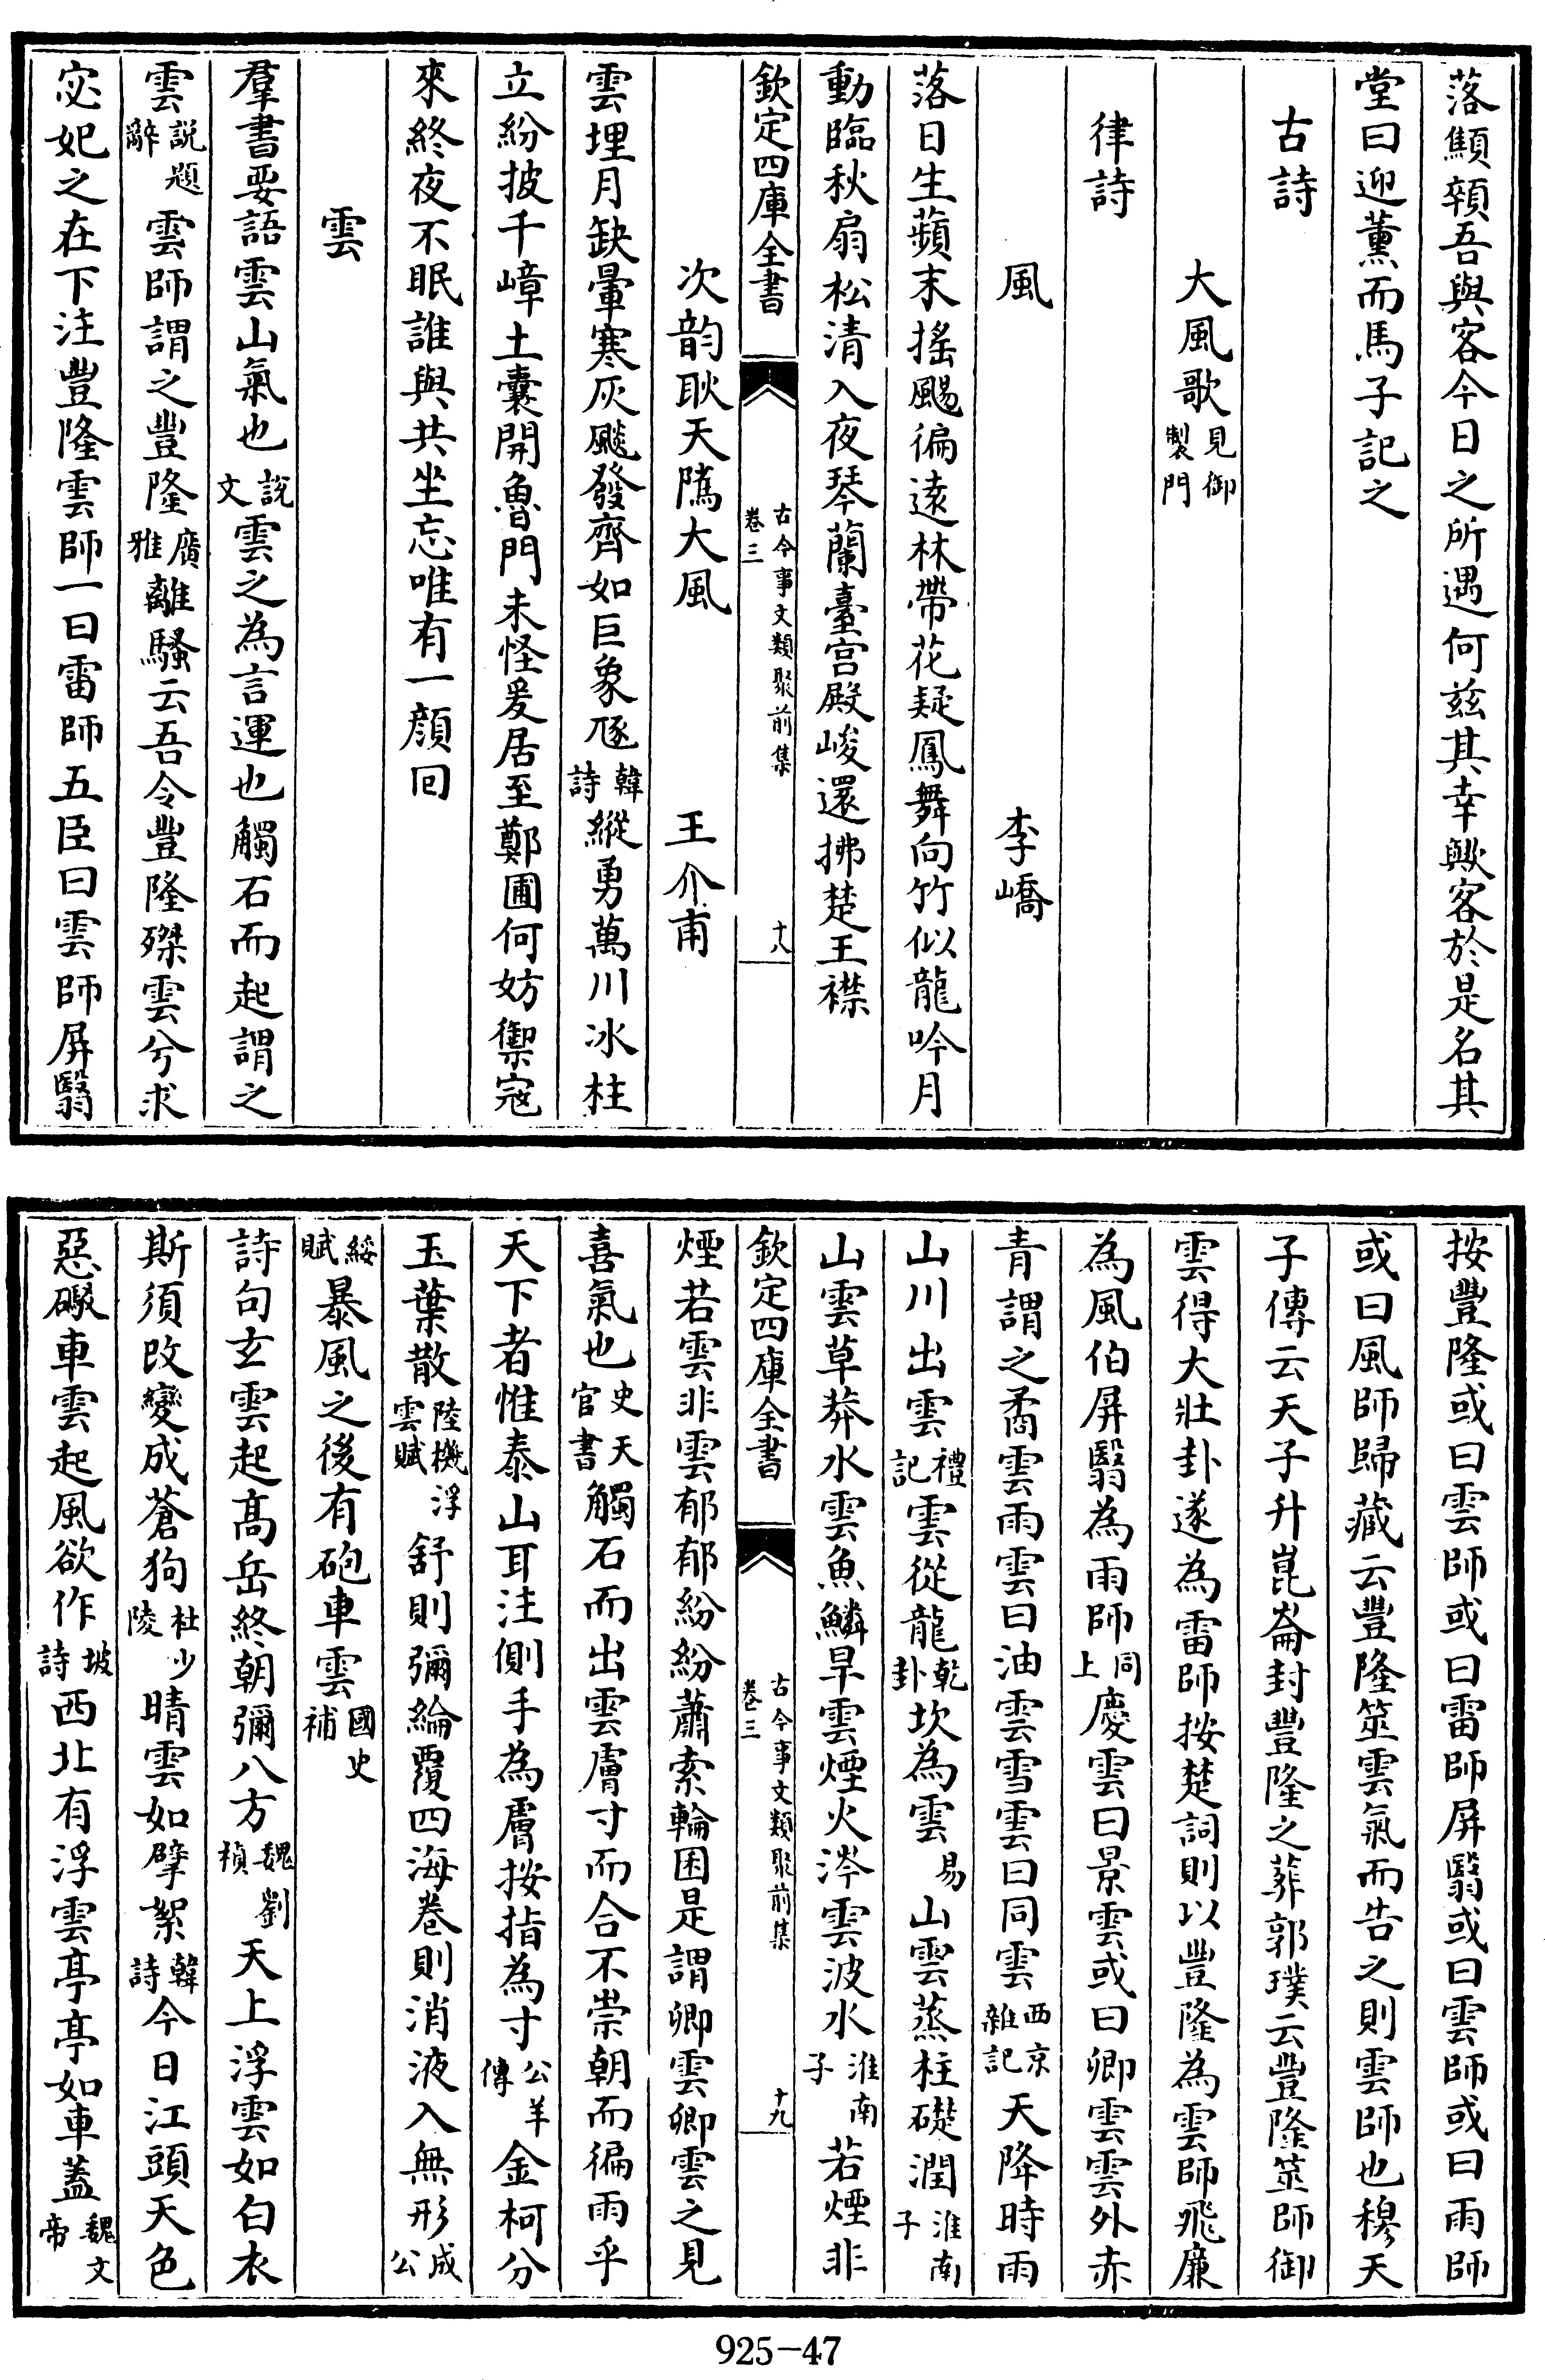 落顦顇吾與客今日之所遇何兹其幸歟客於是名其
堂曰迎薰而馬子記之
古詩
大風歌見御製門
律詩
風 李嶠
落日生蘋末搖颺徧逺林帶花疑鳳舞向竹似龍吟月
動臨秋扇松清入夜琴蘭臺宫殿峻還拂楚王襟
欽定四庫全書 古今事文類聚前集 卷三 十八
次韵耿天隲大風 王介甫
雲埋月缺暈寒灰飈發齊如巨象豗韓詩縱勇萬川冰柱
立紛披千嶂土囊開魯門未怪爰居至鄭圃何妨禦寇
來終夜不眠誰與共坐忘唯有一顔回
雲
羣書要語雲山氣也説文雲之為言運也觸石而起謂之
雲説題辭雲師謂之豐隆廣雅離騷云吾令豐隆椉雲兮求
宓妃之在下注豐隆雲師一曰雷師五臣曰雲師屏翳
按豐隆或曰雲師或曰雷師屏翳或曰雲師或曰雨師
或曰風師歸藏云豐隆筮雲氣而告之則雲師也穆天
子傳云天子升崑崙封豐隆之葬郭璞云豐隆筮師御
雲得大壯卦遂為雷師按楚詞則以豐隆為雲師飛廉
為風伯屏翳為雨師同上慶雲曰景雲或曰卿雲雲外赤
青謂之矞雲雨雲曰油雲雪雲曰同雲西京雜記天降時雨
山川出雲禮記雲從龍乾卦坎為雲易山雲蒸柱礎潤淮南子
山雲草莽水雲魚鱗旱雲煙火涔雲波水淮南子若煙非
欽定四庫全書 古今事文類聚前集 卷三 十九
煙若雲非雲郁郁紛紛蕭索輪囷是謂卿雲卿雲之見
喜氣也史天官書觸石而出雲膚寸而合不崇朝而徧雨乎
天下者惟泰山耳注側手為膚按指為寸公羊傳金柯分
玉葉散陸機浮雲賦舒則彌綸覆四海卷則消液入無形成公
綏賦暴風之後有砲車雲國史補
詩句玄雲起髙岳終朝彌八方魏劉楨天上浮雲如白衣
斯須改變成蒼狗杜少陵晴雲如擘絮韓詩今日江頭天色
惡礮車雲起風欲作坡詩西北有浮雲亭亭如車葢魏文帝
925-47